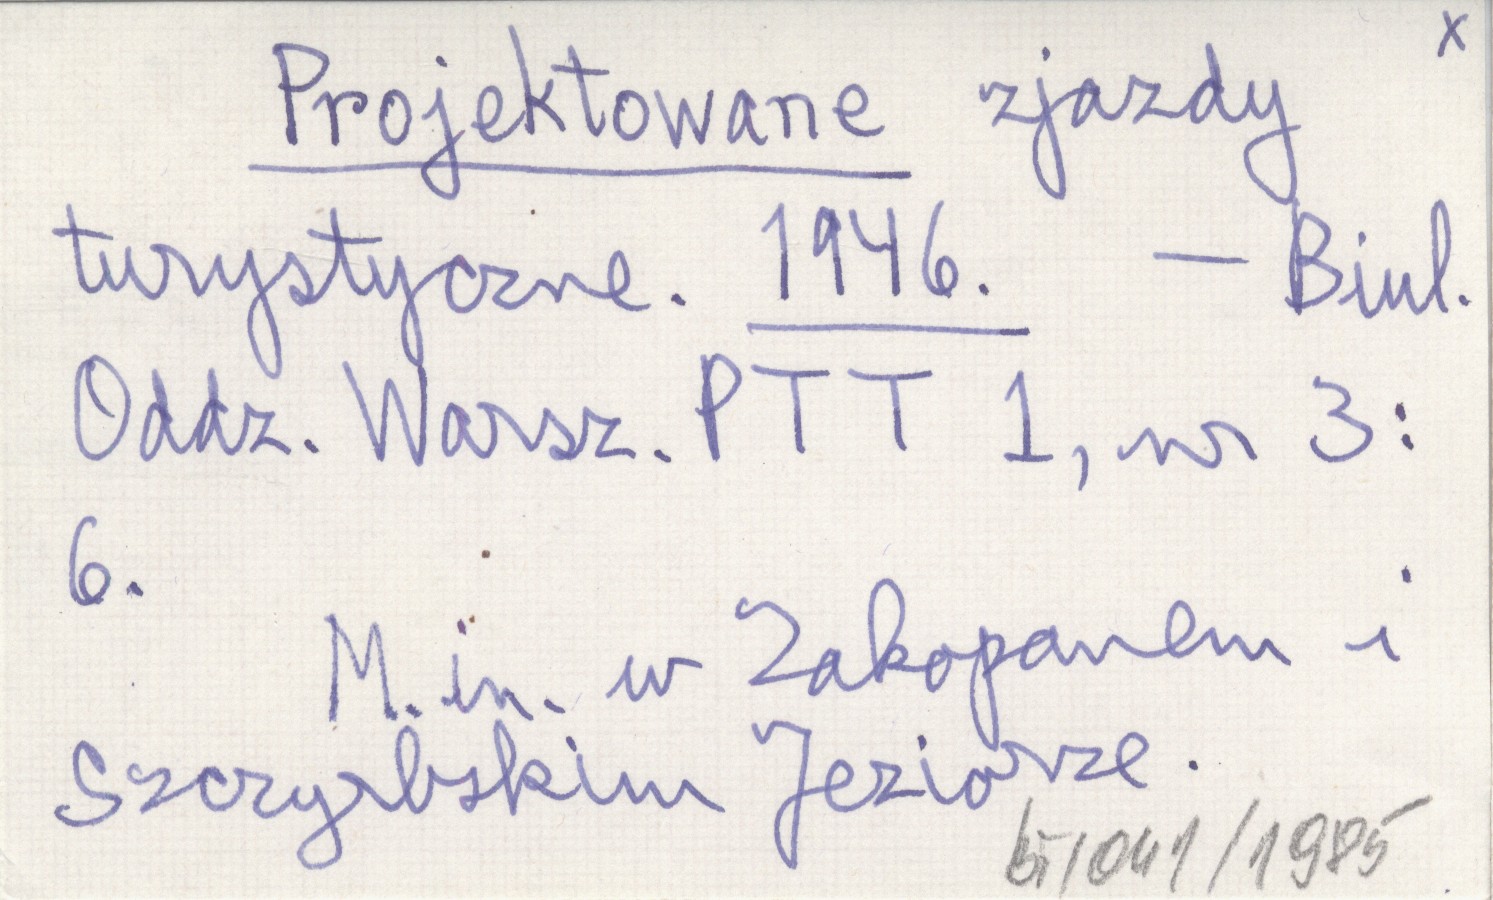 x
Projektowane zjazdy
turystyczne. 1946. — Biul.
Oddz. Warsz. PTT 1, nr 3:
6.
M. in. w Zakopanem i
Szczyrbskim Jeziorze.
/1985